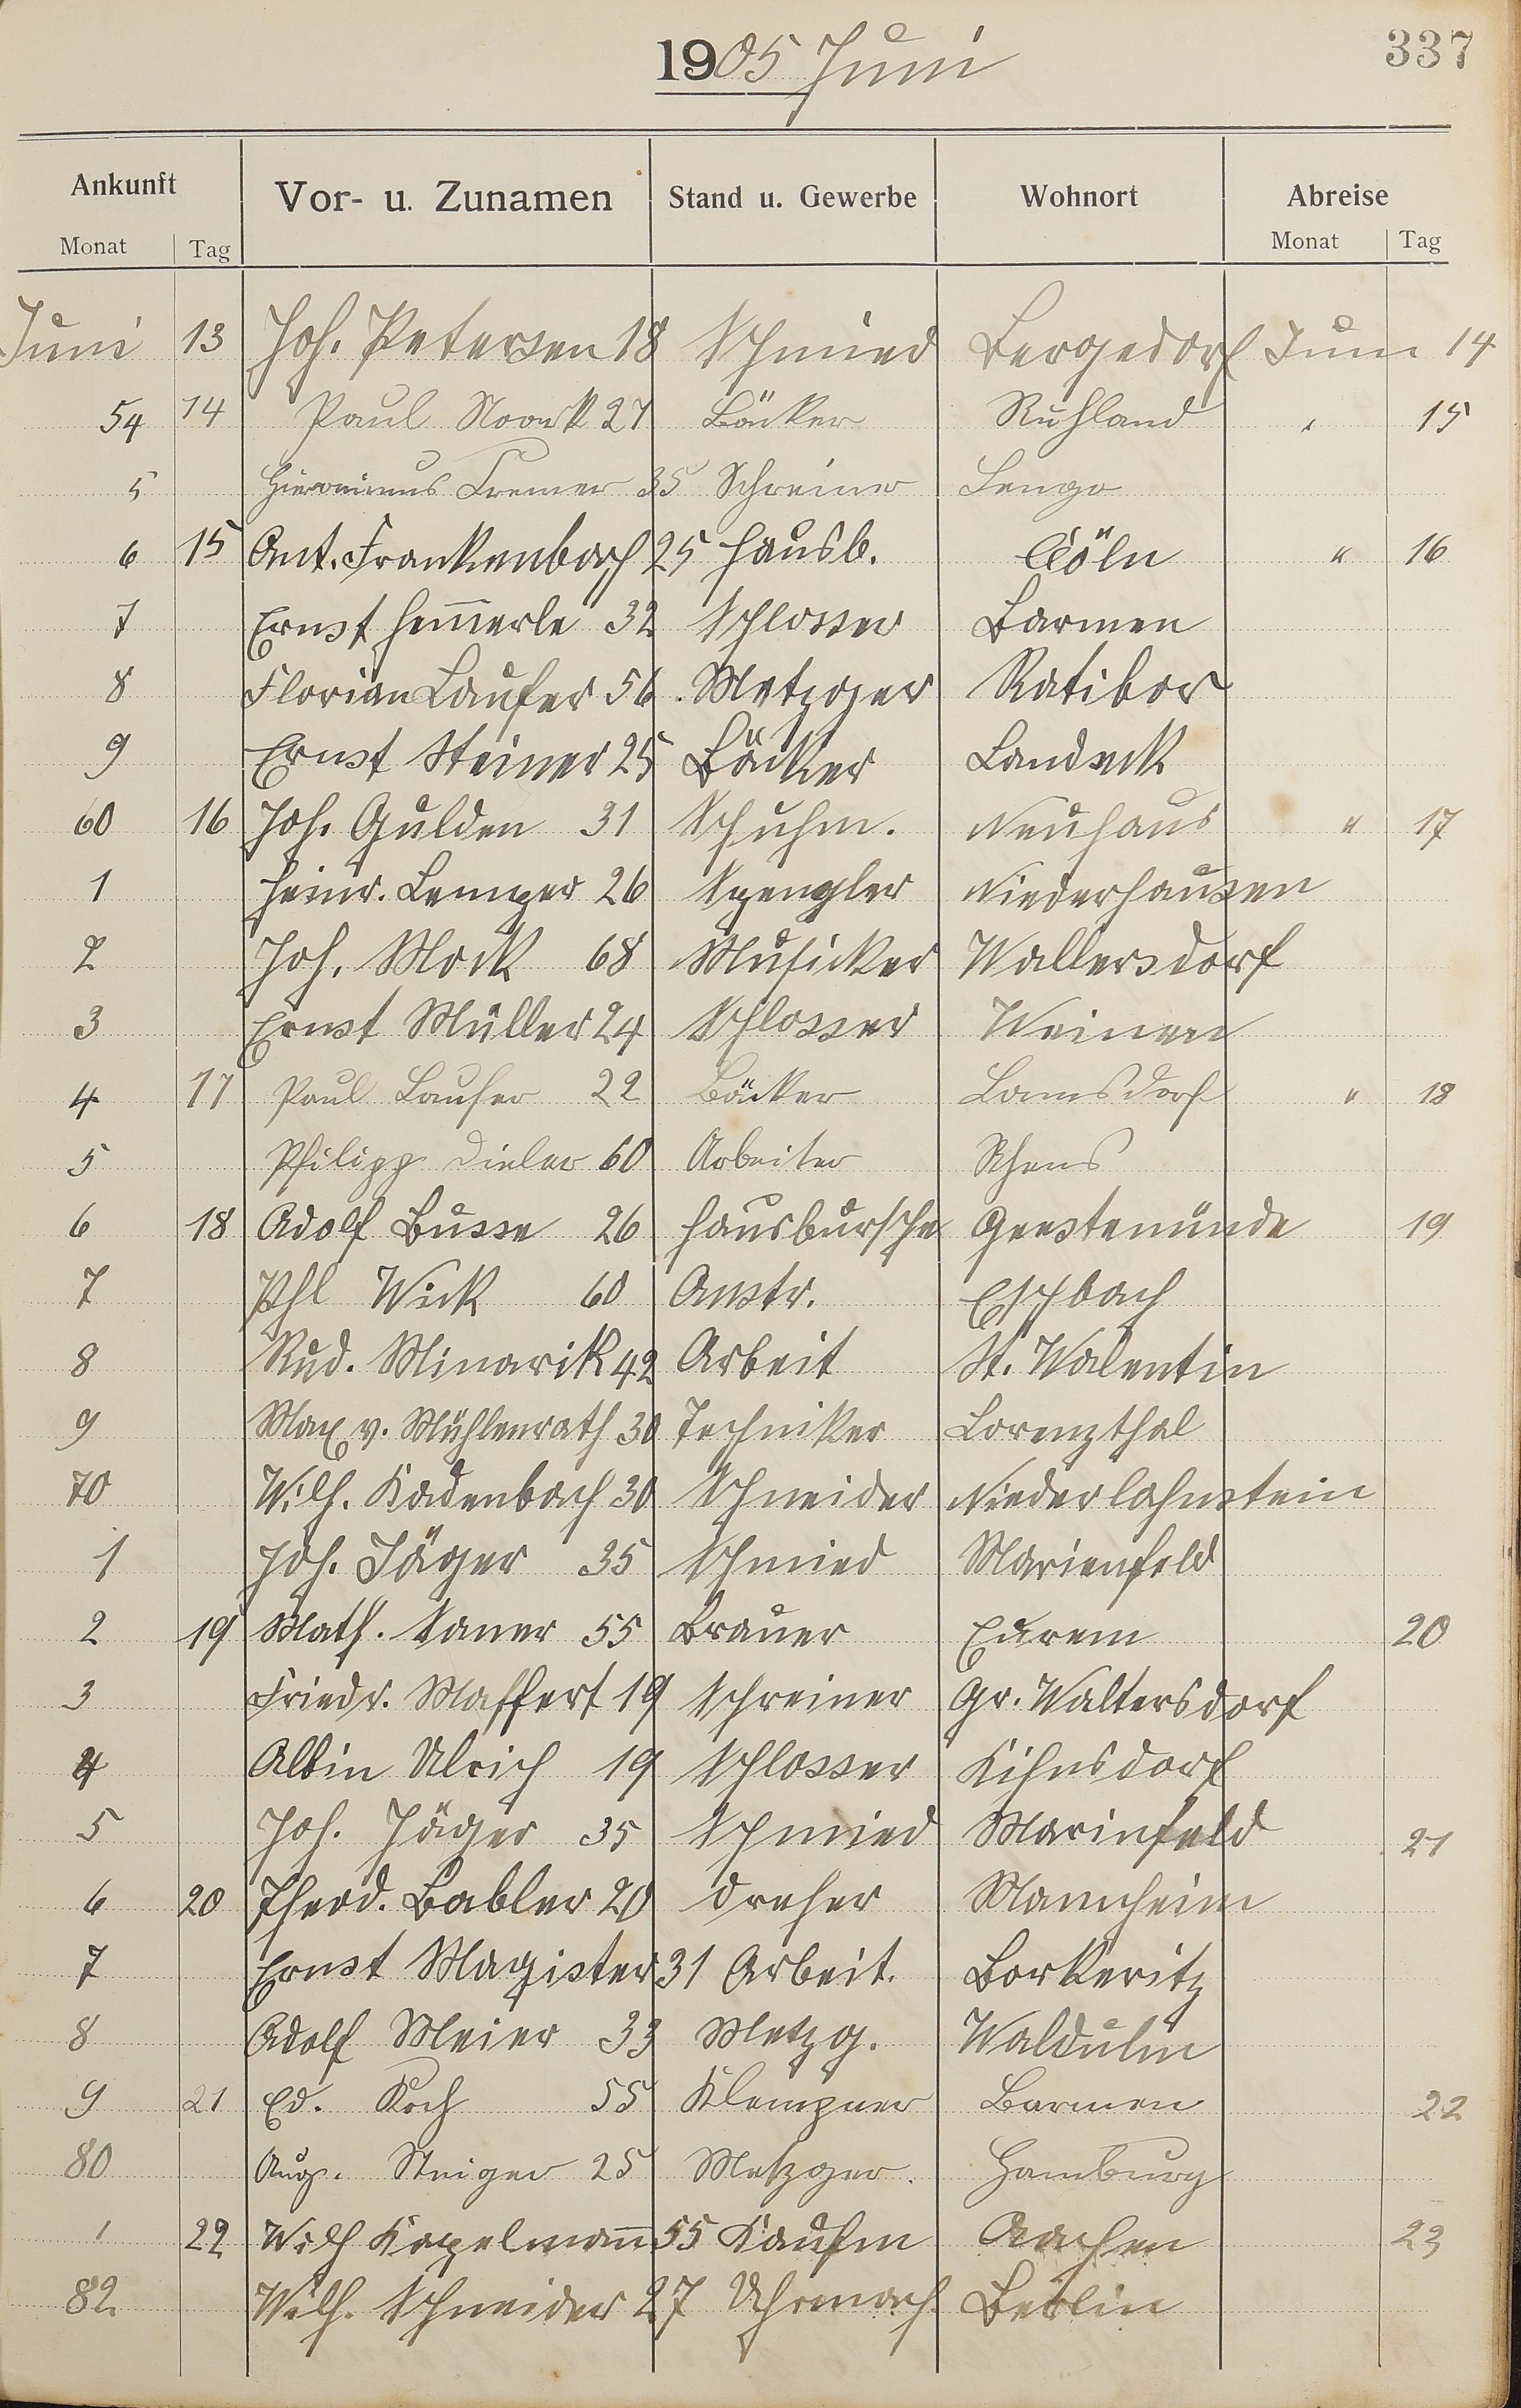 1905 Juni
337
Ankunft Vor- u. Zunamen Stand u. Gewerbe Wohnort Abreise
Monat Tag Monat Tag
Juni 13 Joh. Petersen 18 Schmied Bergedorf Juni 14
54 14 Paul Noack 27 Bäcker Ruhland " 15
5 Hieronimus Cremer 35 Schreiner Lemgo
6 15 Ant. Frankenbach 25 Hausb. Cöln " 16
7 Ernst Hem̅erle 32 Schlosser Barmen
8 Florian Laufer 56 Metzger Ratibor
9 Ernst Steiner 25 Bäcker Landeck
60 16 Joh. Gulden 31 Schuhm. Neuhaus " 17
1 Heinr. Lemper 26 Spengler Niederhausen
2 Joh. Mock 68 Musicker Wallersdorf
3 Ernst Müller 24 Schlosser Weimen
4 17 Paul Laufer 22 Bäcker Lamsdorf " 18
5 Philipp Dieler 60 Arbeiter Rhens
6 18 Adolf Busse 26 Hausbursche Geestemünde 19
7 Phl Wick 60 Anstr. Eschbach
8 Rud. Minarik 42 Arbeit St. Walentin
9 Max v. Mühlenrath 30 Techniker Lorenzthal
70 Wilh. Kadenbach 30 Schneider Niederlahnstein
1 Joh. Jäger 35 Schmied Marienfeld
2 19 Math. Saner 55 Brauer Eurem 20
3 Friedr. Maffert 19 Schreiner Gr. Waltersdorf
4 Albin Ulrich 19 Schlosser Kihnsdorf
5 Joh. Jäger 35 Schmied Marinfeld 21
6 20 Theod. Babler 20 Dreher Mannheim
7 Ernst Magister 31 Arbeit. Borkeritz
8 Adolf Meier 33 Metzg. Waldulm
9 21 Ed. Koch 55 Klempner Barmen 22
80 Aug. Steiger 25 Metzger. Hamburg
1 22 Wilh Kapelman̅ 55 Kaufm Aachen 23
82 Wilh. Schneider 27 Uhrmach. Berlin